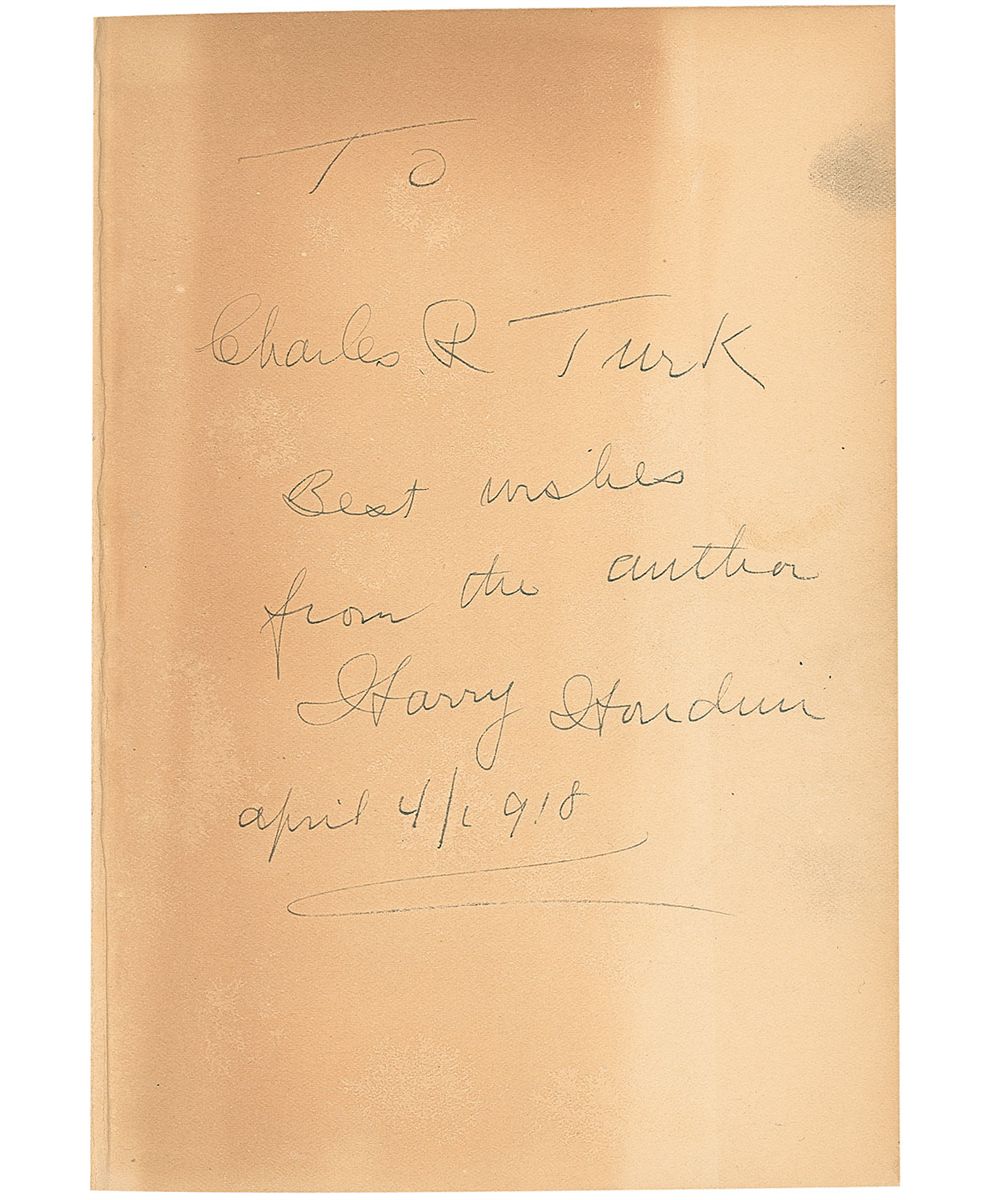 To
Charles. R Turk
Best wishes
from the author
Harry Houdini
april 4/1918